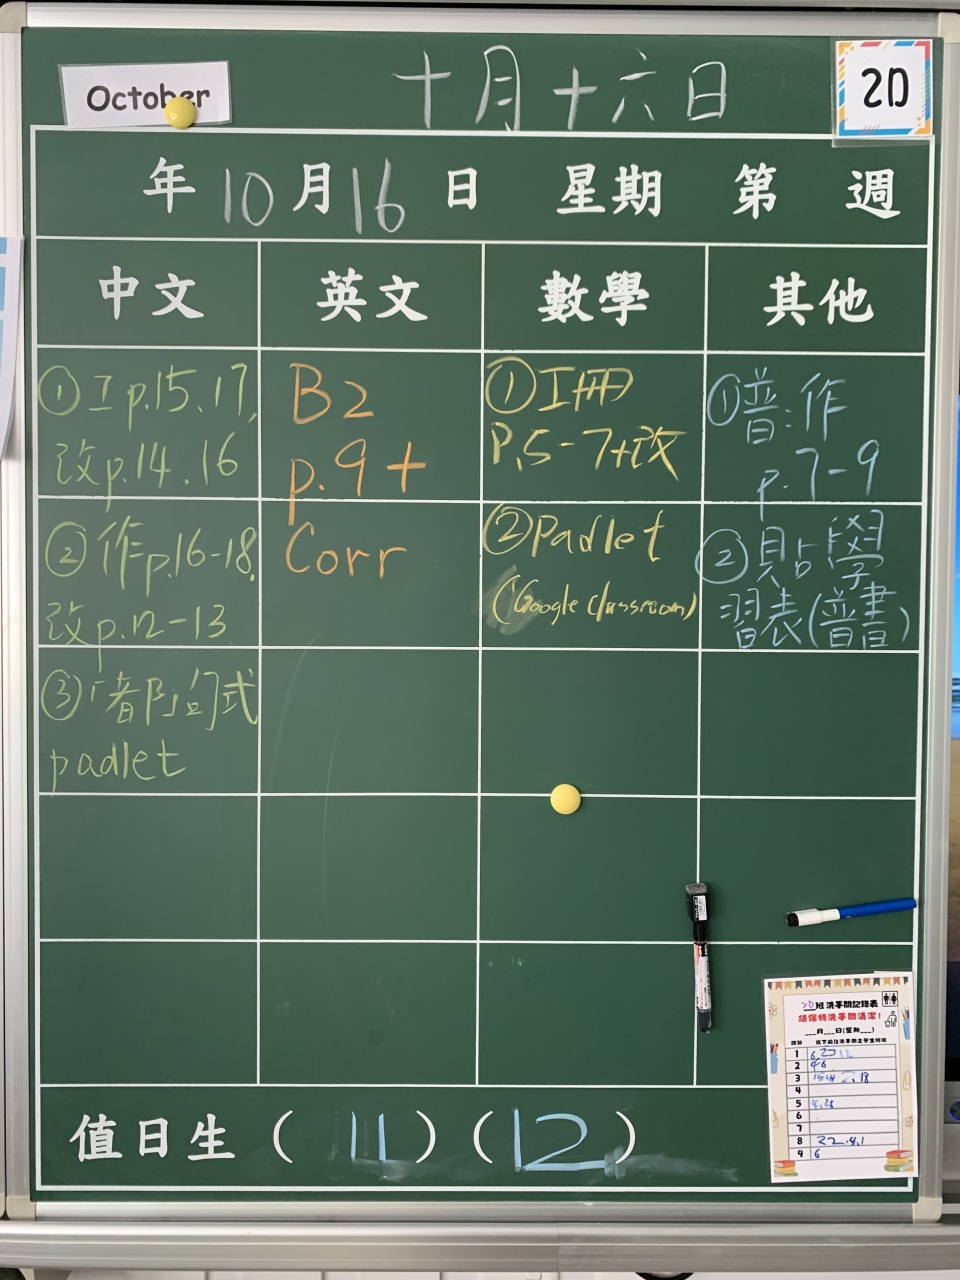 October
十月十六日
2D
年10月16日 星期 第 週
中文 英文 數學 其他
①工p.15、17,
改p.14、16
②作p.16-18,
改p.12-13
③「者阝」句式
padlet
B2
p.9+
Corr
①工冊
P.5-7+改
②Padlet
(Google classroom)
①普:作
p.7-9
②貼學
習表(普書)
值日生 ( 11 ) ( 12 )
2D班洗手間記錄表
請保持洗手間清潔!
___月___日(星期___)
1
2 46
3
4
5
6
7
8 22.4.1
9 6